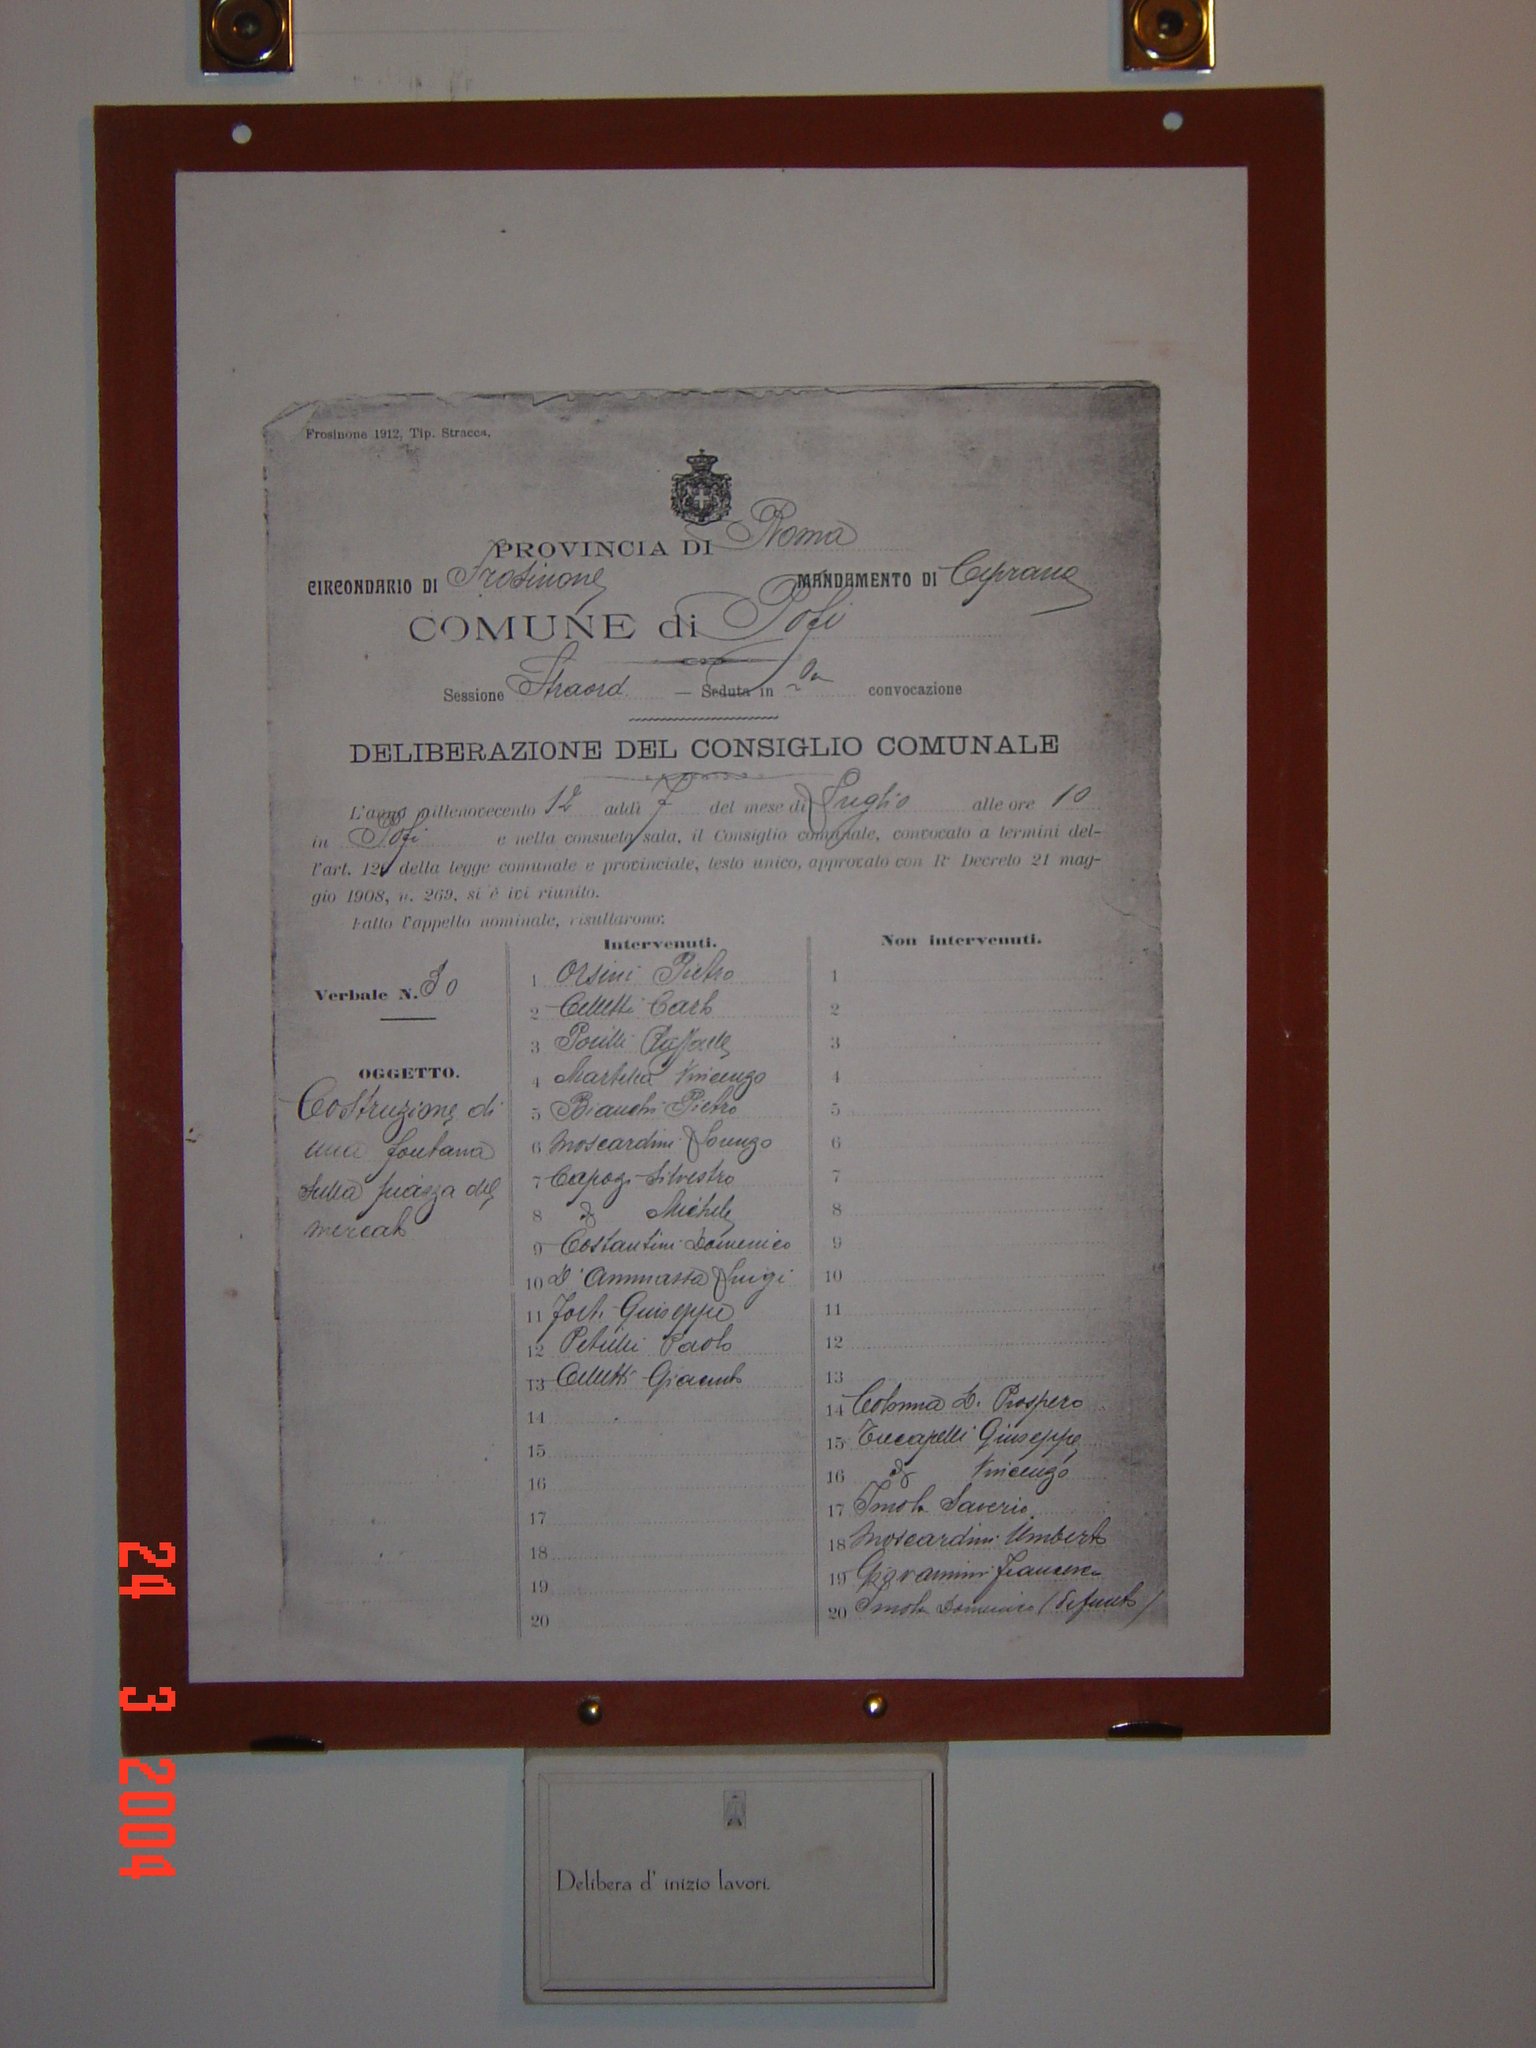 Frosinone 1912, Tip. Stracca.
PROVINCIA DI Roma
CIRCONDARIO DI Frosinone MANDAMENTO DI Ceprano
COMUNE di Pofi
Sessione Straord — Seduta in 2a convocazione
DELIBERAZIONE DEL CONSIGLIO COMUNALE
L'anno millenovecento 12 addì 7 del mese di Luglio alle ore 10
in Pofi e nella consueta sala, il Consiglio comunale, convocato a termini del-
l'art. 120 della legge comunale e provinciale, testo unico, approvato con R Decreto 21 mag-
gio 1908, n. 269, si è ivi riunito.
Fatto l'appello nominale, risultarono:
Verbale N. 30
OGGETTO.
Costruzione di
una fontana
sulla piazza del
mercato
Intervenuti.
1 Orsini Pietro
2 Celletti Carlo
3 Raffaele
4 Vincenzo
5 Bianchi Pietro
6 Moscardini Lorenzo
7 Capogi Silvestro
8 Michele
9 Costantini Domenico
10 D'Ammassa Luigi
11 Forti Giuseppe
12 Petrilli Paolo
13 Celletti Giacinto
14
15
16
17
18
19
20
Non intervenuti.
1
2
3
4
5
6
7
8
9
10
11
12
13
14 Colonna D. Prospero
15 Giuseppe
16 Vincenzo
17 Imola Saverio
18 Moscardini Umberto
19 Giovannini Francesco
20 Imola Domenico (defunto)
Delibera d' inizio lavori.
24 3 2004